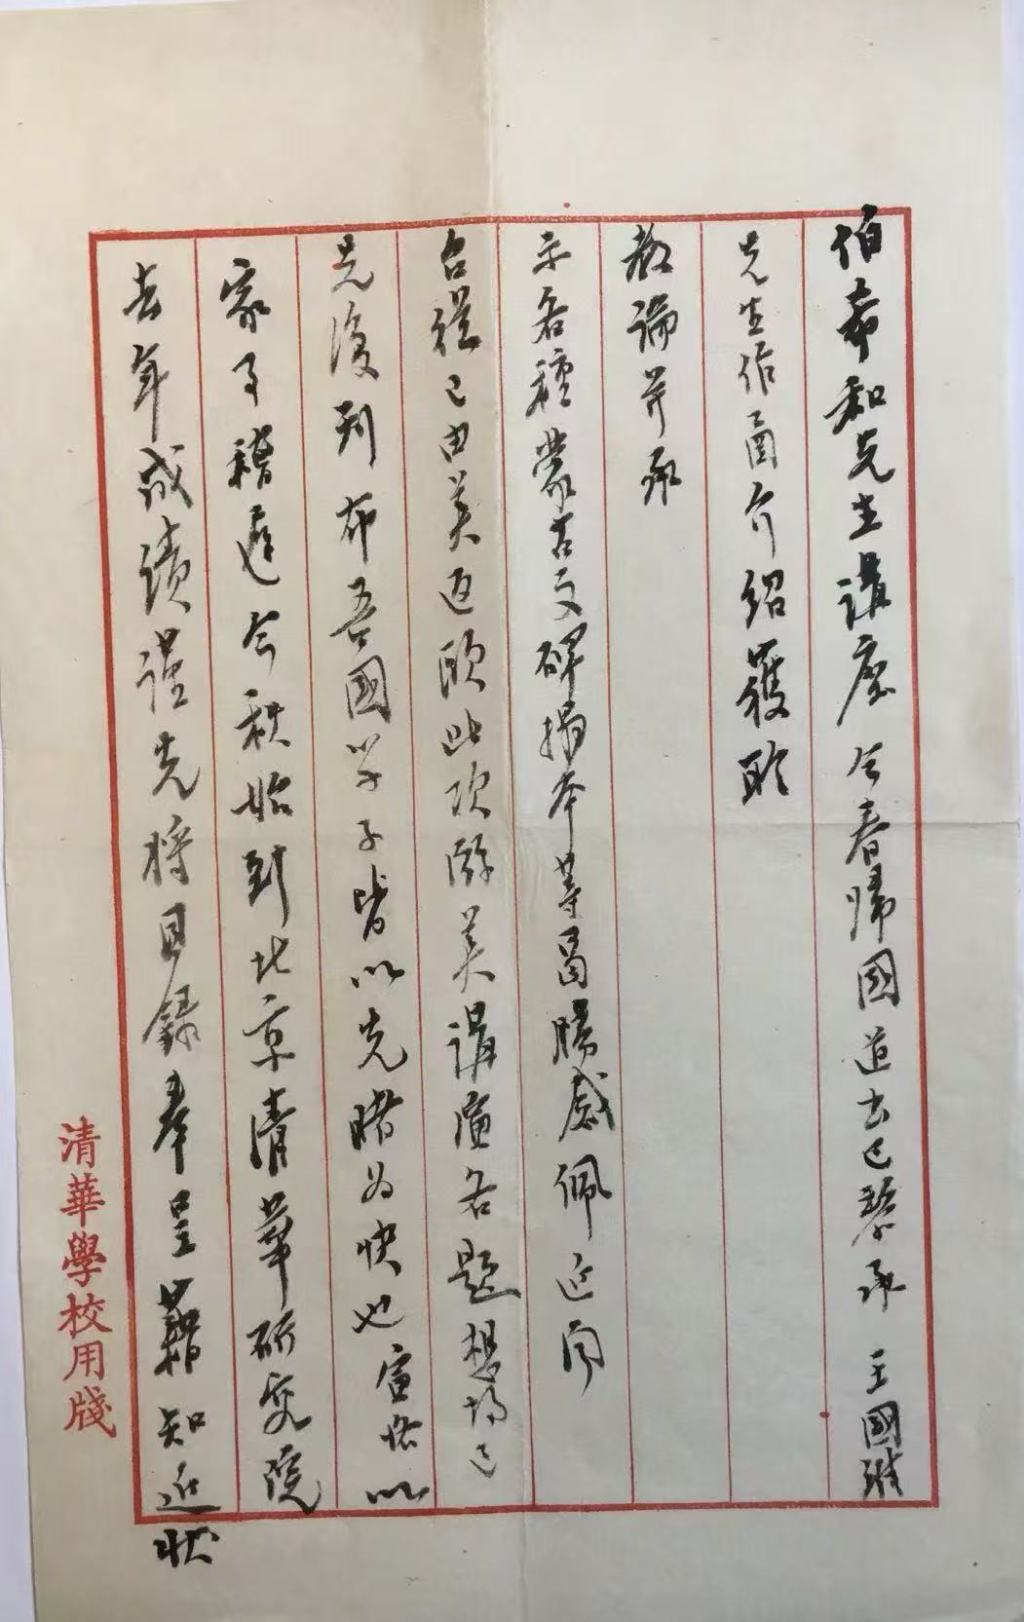 伯希和先生講座今春歸國道出巴黎承 王國維
先生作函介紹獲聆
教論并承
示各種蒙古文碑搨本等曷勝感佩近聞
台從已由美返歐此次游美講演各題想均已
先後刊布吾國學子皆以先睹為快也寅恪以
家事稽遲今秋始到北京清華研究院
去年成績謹先將目錄奉呈藉知近狀
清華學校用牋